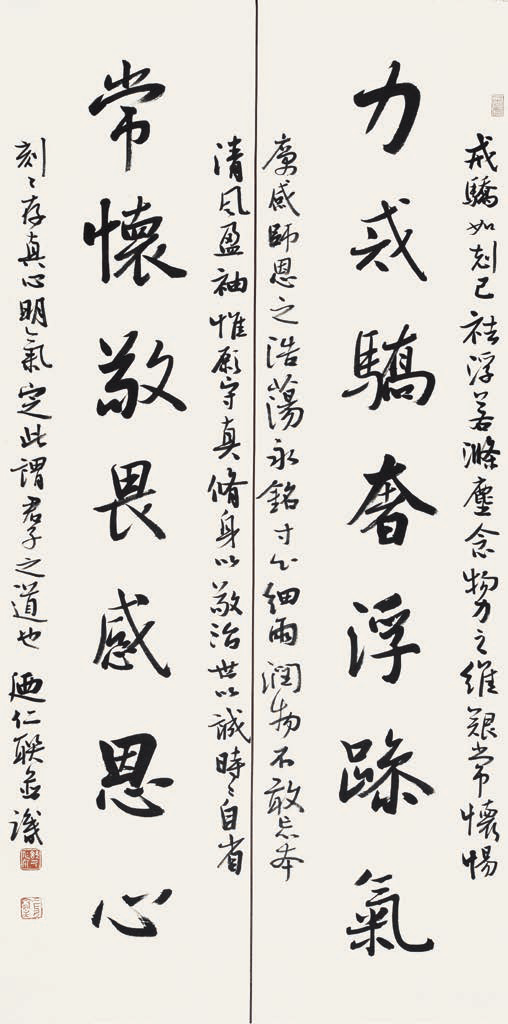 戒驕如剋己祛浮若滌塵念物力之維艱常懷惕
力戒驕奢浮躁氣
感師恩之浩蕩永銘寸心細雨潤物不敢忘本
清風盈袖惟願守真脩身以敬治世以誠時〻自省
常懷敬畏感恩心
刻〻存真心明氣定此謂君子之道也 迺仁聯並識